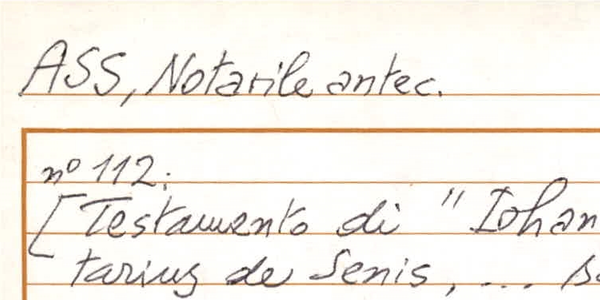 ASS, Notarile antec.
nº 112:
[Testamento di "Iohan
tarius de Senis, ...